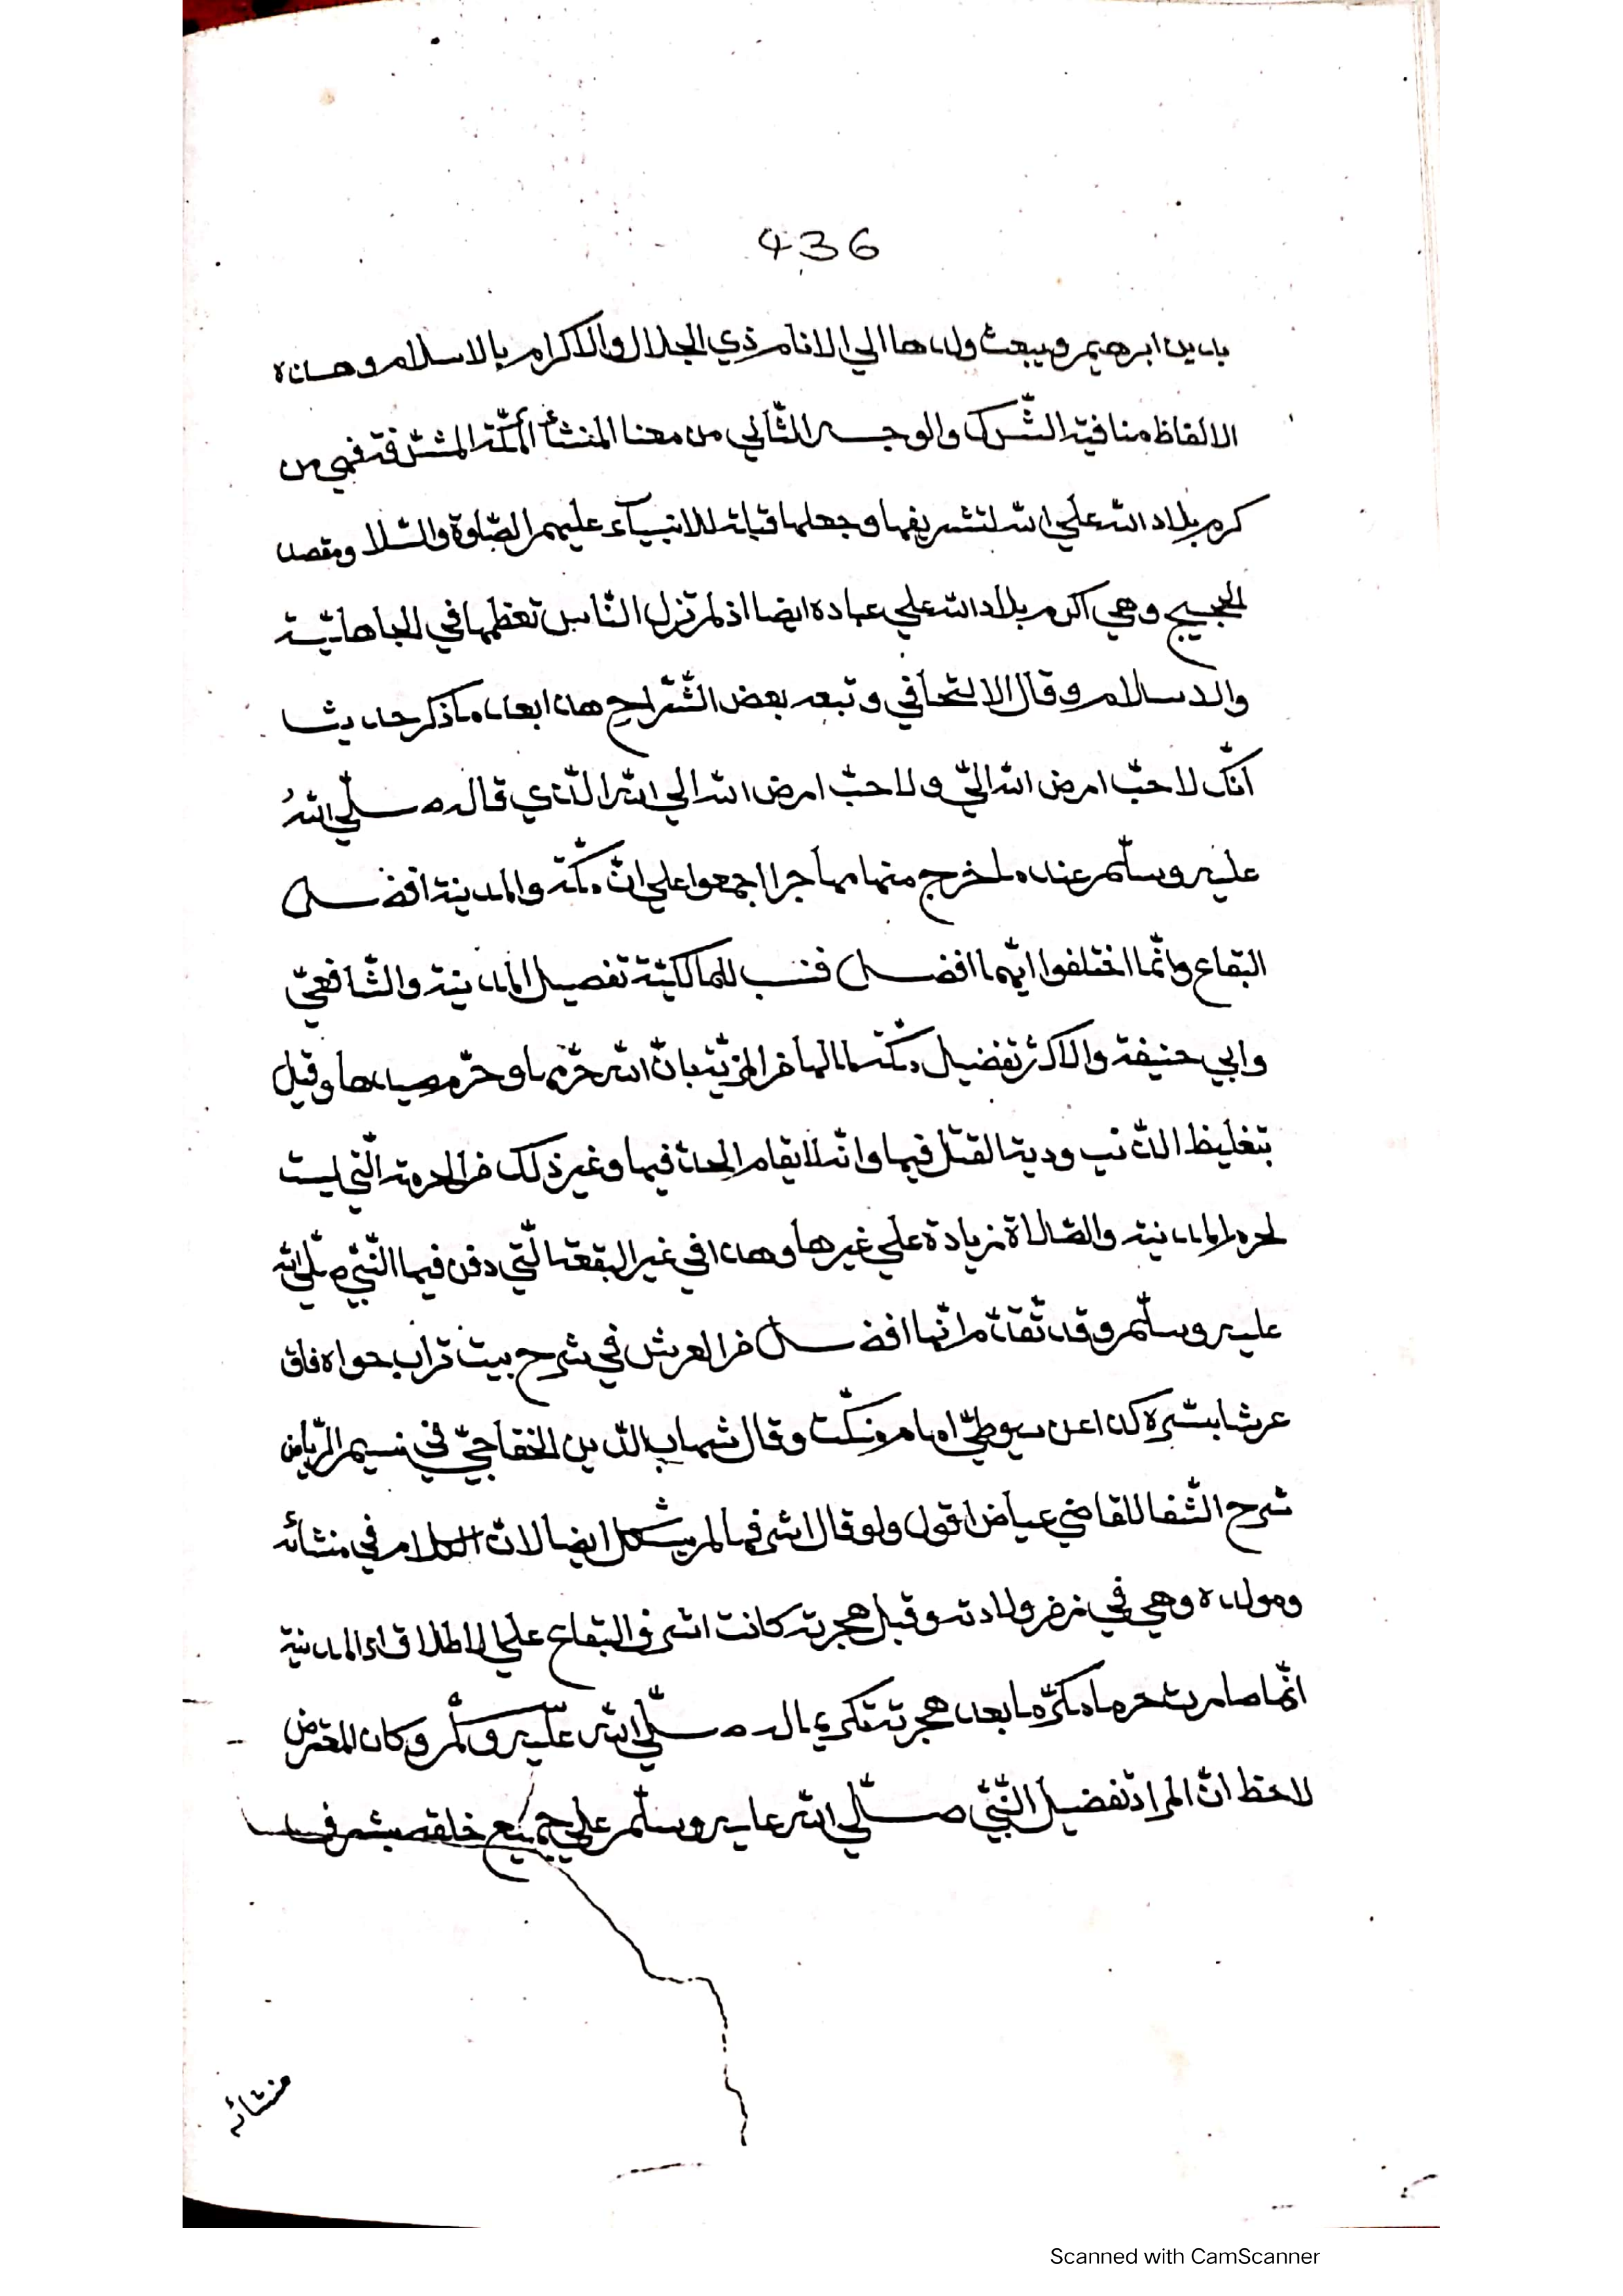 436
بدين ابرهيم ويبعث ولدها الي الانام ذي الجلال والاكرام بالاسلام وهذه
الالفاظ منافية الشّرك والوجه الثّاني من معنا المنشأ أمكّة المشرّفة فهي من
كرم بلاد الله علي الله لتشريفها وجعلها قبلة للانبيآء عليهم الصّلوة والسّلا ومقصد
الحجيج وهي اكرم بلاد الله علي عباده ايضا اذ لم تزل النّاس تعظمها في الجاهليّة
والاسلام وقال الالتحافي وتبعه بعض الشّراح هذا بعد ما ذكر حديثا
انّك لاحبّ ارض الله اليّ ولاحبّ ارض الله الي الله الّذي قاله صلّي اللهُ
عليه وسلّم عند ما خرج منها مهاجرا اجمعوا علي انّ مكّة والمدينة افضل
البقاع وانّما اختلفوا ايّهما افضل فنسب للمالكيّة تفصيل المدينة والشّافعيّ
وابي حنيفة والاكثر تفضيل مكّة لما لها من المزيّة بانّ الله حرّمها وحرّم صيدها وقيل
بتغليظ الذّنب ودية القتل فيها وانّه لا يقام الحدّ فيها وغير ذلك من الحرمة الّتي ليست
لحرم المدينة والصّلاة زيادة علي غيرها وهذا في غير البقعة الّتي دفن فيها النّبيّ صلّي الله
عليه وسلّم وقد تّقدّم انّها افضل من العرش في شرح بيت تراب حواه فاق
عرشا بسّره كذا عن سيوطيّ امام ونكّت وقال شهاب الدّين الخفاجيّ في نسيم الرّياض
شرح الشّفا للقاضي عياض اقول ولو قال اشرفها لم يشكل ايضا لانّ الكلام في منشأه
ومولده وهي في زمن ولادته وقبل هجرته كانت اشرف البقاع علي الاطلاق اذ المدينة
انّما صارت حرما مكرّما بعد هجرته تكريما له صلّي الله عليه وسلّم وكان المعترض
لاحظ انّ المراد تفضيل النّبيّ صلّي الله عليه وسلّم علي جميع خلقه بشرف
منشائه
Scanned with CamScanner